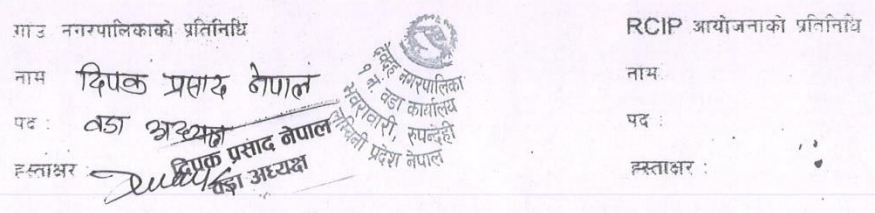 गाउँ नगरपालिकाको प्रतिनिधि
नाम दिपक प्रसाद नेपाल
पद : वडा अध्यक्ष
हस्ताक्षर :
दिपक प्रसाद नेपाल
वडा अध्यक्ष
देवदह नगरपालिका
१ नं. वडा कार्यालय
भवरावारी, रुपन्देही
लुम्बिनी प्रदेश नेपाल
RCIP आयोजनाको प्रतिनिधि
नाम
पद :
हस्ताक्षर :